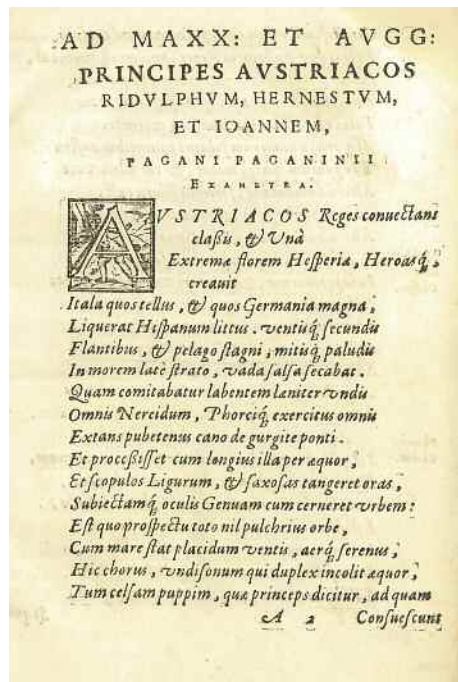 AD MAXX: ET AVGG:
PRINCIPES AVSTRIACOS
RIDVLPHVM, HERNESTVM,
ET IOANNEM,
PAGANI PAGANINII
EXAMETRA.
AVSTRIACOS Reges conuectant
claßis, & Vnà
Extremæ florem Hesperiæ, Heroasq́;
creauit
Itala quos tellus, & quos Germania magna;
Liquerat Hespanum littus. ventisq́; secundis
Flantibus, & pelago stagni; mitisq́; paludis
In morem latè strato, vada salsa secabat.
Quam comitabatur labentem laniter vndis
Omnis Nereidum, Phorciq́; exercitus omnis
Extans pubetenus cano de gurgite ponti.
Et proceßisset cum longius illa per æquor;
Et scopulos Ligurum, & saxosas tangeret oras;
Subiectamq́; oculis Genuam cum cerneret vrbem:
Est quo prospectu toto nil pulchrius orbe,
Cum mare stat placidum ventis, aerq́; serenus;
Hic chorus, vndisonum qui duplex incolit æquor;
Tum celsam puppim, quæ princeps dicitur, ad quam
A 2 Consuescunt